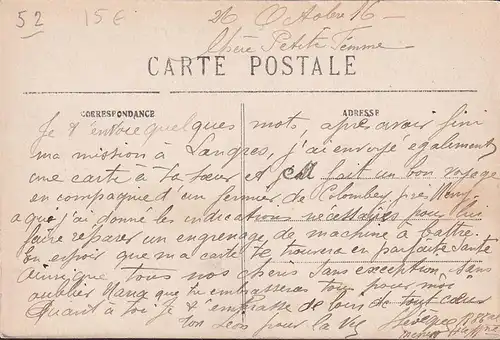 52 15€
26 Octobre 16 -
Chère Petite Femme
CARTE POSTALE
CORRESPONDANCE ADRESSE
Je t'envoie quelques mots, après avoir fini
ma mission à Langres, j'ai envoyé également
une carte à ta sœur et fait un bon voyage
en compagnie d'un fermier de Colombey près
a qui j'ai donné les indications nécessaires pour lui
faire réparer un engrenage de machine à battre.
En espoir que ma carte te trouvera en parfaite santé
ainsi que tous nos chers sans exception, sans
oublier Nana que tu embrasseras bien pour moi
Quant à toi je t'embrasse de loin de tout cœur
ton Léon pour la Vie